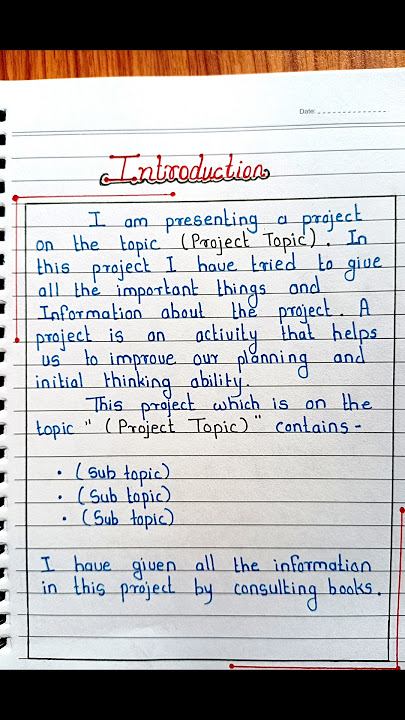 Date:
Introduction
I am presenting a project
on the topic (Project Topic). In
this project I have tried to give
all the important things and
Information about the project. A
project is an activity that helps
us to improve our planning and
initial thinking ability.
This project which is on the
topic " (Project Topic)" contains-
• (Sub topic)
• (Sub topic)
• (Sub topic)
I have given all the information
in this project by consulting books.